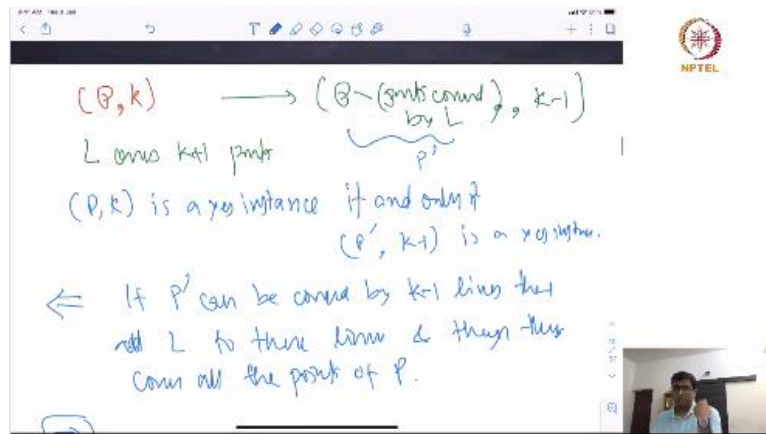 NPTEL
(P, k) → (P - (points covered by L), k-1)
P'
L covers k+1 points
(P, k) is a yes instance if and only if
(P', k-1) is a yes instance.
⇐ If P' can be covered by k-1 lines then
add L to these lines & then they
cover all the points of P.